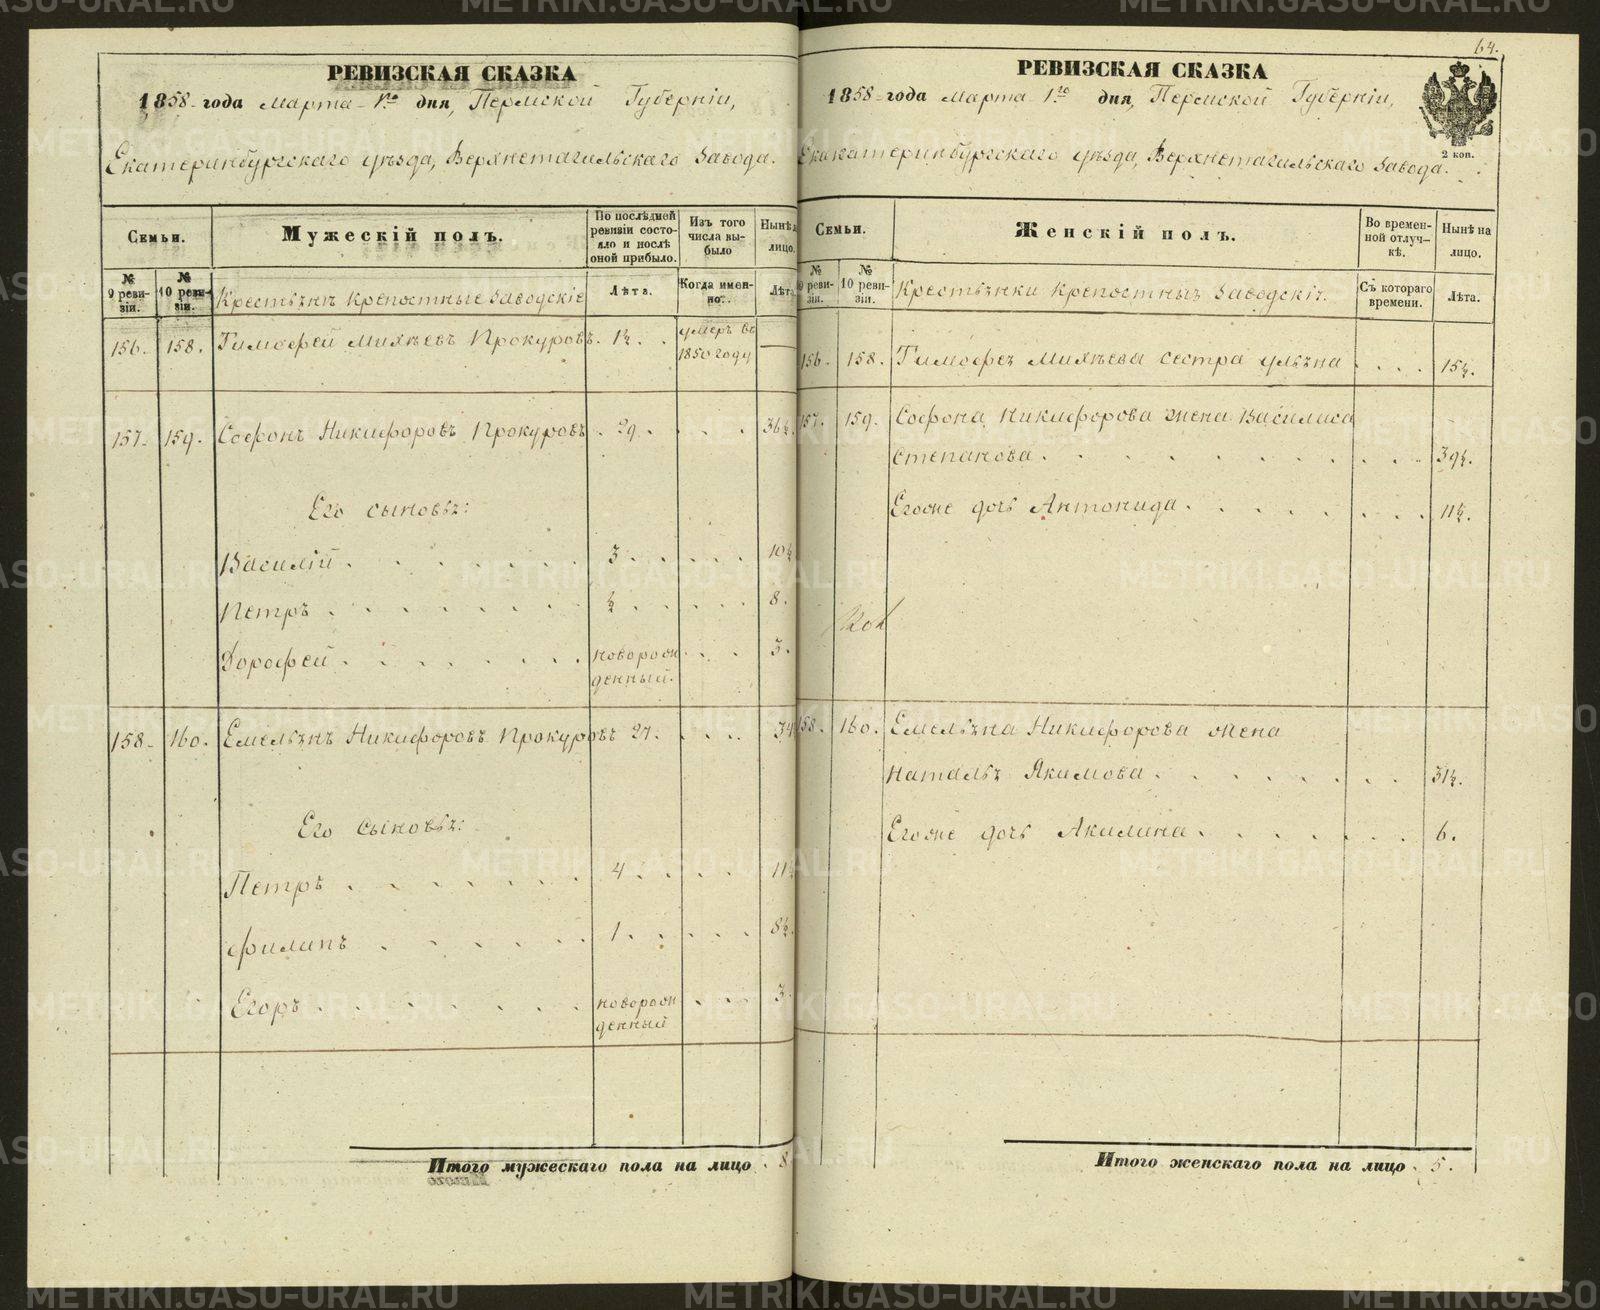 РЕВИЗСКАЯ СКАЗКА
1858 года Марта 1го дня, Пермской Губерніи,
Екатеринбургскаго уѣзда, Верхнетагильскаго Завода.
Семьи.
Мужескій полъ.
По послѣдней ревизіи состояло и послѣ оной прибыло.
Изъ того числа выбыло
Нынѣ на лицо.
№ 9 ревизіи.
№ 10 ревизіи.
Крестьянъ крѣпостные заводскіе
Лѣта.
Когда именно.
Лѣта
156. 158. Тимофей Михѣевъ Прокуровъ. 1½. умеръ въ 1850 году
157. 159. Софонъ Никифоровъ Прокуровъ. 29. 36½.
Его сыновья:
Василій 3 10½
Петръ ½ 8.
Дорофей новорожденный. 3.
158. 160. Емельянъ Никифоровъ Прокуровъ 27. 34
Его сыновья:
Петръ 4 11½
Филипъ 1. 8½.
Егоръ новорожденный 3
Итого мужескаго пола на лицо 8
64.
РЕВИЗСКАЯ СКАЗКА
1858 года Марта 1го дня, Пермской Губерніи,
Екатеринбургскаго уѣзда, Верхнетагильскаго Завода.
2 коп.
Семьи.
Женскій полъ.
Во временной отлучкѣ.
Нынѣ на лицо.
№ 9 ревизіи.
№ 10 ревизіи.
Крестьянки крепостныя заводскія.
Съ котораго времени.
Лѣта.
156. 158. Тимофея Михѣева сестра Ульяна 15½.
157. 159. Софона Никифорова жена Василиса
Степанова. 39½.
Егоже дочь Антонида. 11½.
158. 160. Емельяна Никифорова жена
Наталья Якимова. 31½.
Егоже дочь Акилина. 6.
Итого женскаго пола на лицо. 5.
METRIKI.GASO-URAL.RU